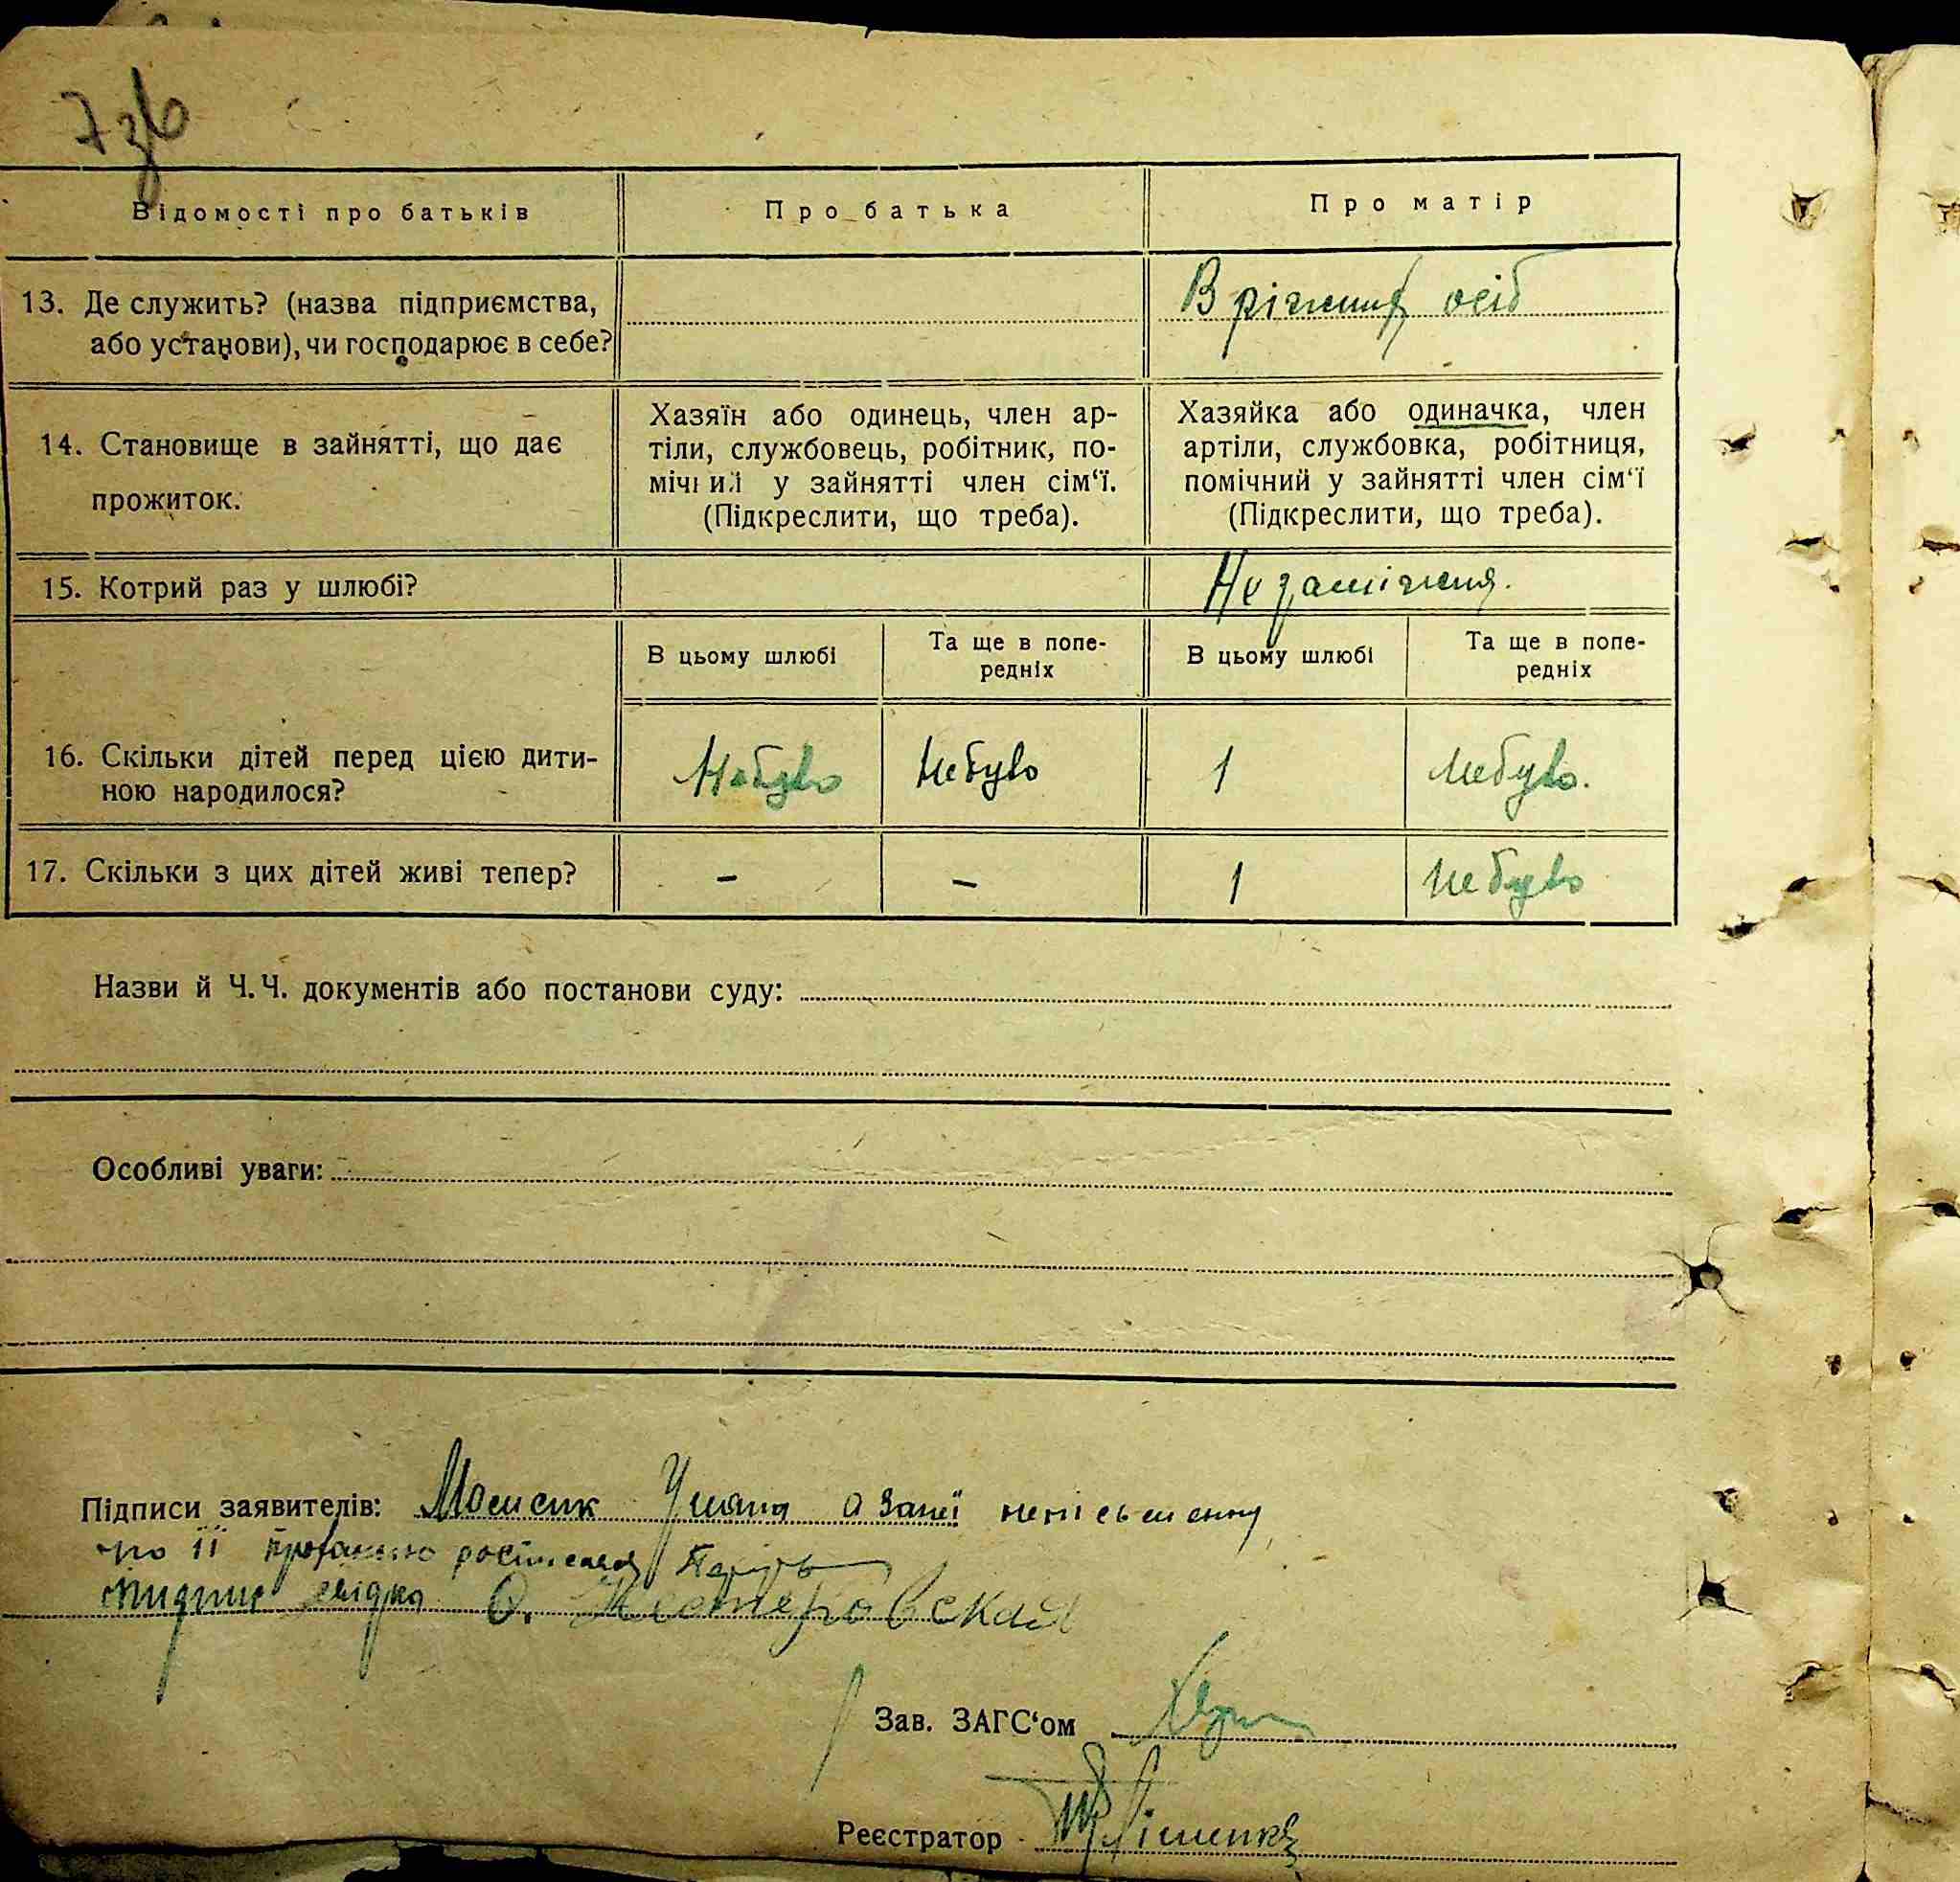 7зв
Відомості про батьків
Про батька
Про матір
13. Де служить? (назва підприємства,
або установи), чи господарює в себе?
В ріжних осіб
14. Становище в зайнятті, що дає
прожиток.
Хазяїн або одинець, член ар-
тіли, службовець, робітник, по-
мічний у зайнятті член сім‘ї.
(Підкреслити, що треба).
Хазяйка або одиначка, член
артіли, службовка, робітниця,
помічний у зайнятті член сім‘ї
(Підкреслити, що треба).
15. Котрий раз у шлюбі?
Не заміжня.
В цьому шлюбі
Та ще в попе-
редніх
В цьому шлюбі
Та ще в попе-
редніх
16. Скільки дітей перед цією дити-
ною народилося?
Небуло
Небуло
1
Небуло.
17. Скільки з цих дітей живі тепер?
-
-
1
Небуло
Назви й Ч.Ч. документів або постанови суду:
Особливі уваги:
Підписи заявителів: Мошсик Уляна а за неї неписьменну
по її
підпис свідка О. Нестеровская
Зав. ЗАГС‘ом
Реєстратор